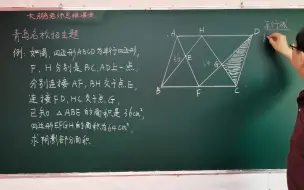 青岛名校招生题
例:如图,四边形ABCD为平行四边形,
F,H分别是BC,AD上一点,
分别连接AF,BH交于点E,
连接FD,HC交于点G,
已知△ABE的面积是36cm²,
四边形EFGH的面积为64cm²,
求阴影部分面积
A
H
D
E
G
B
F
C
平行线